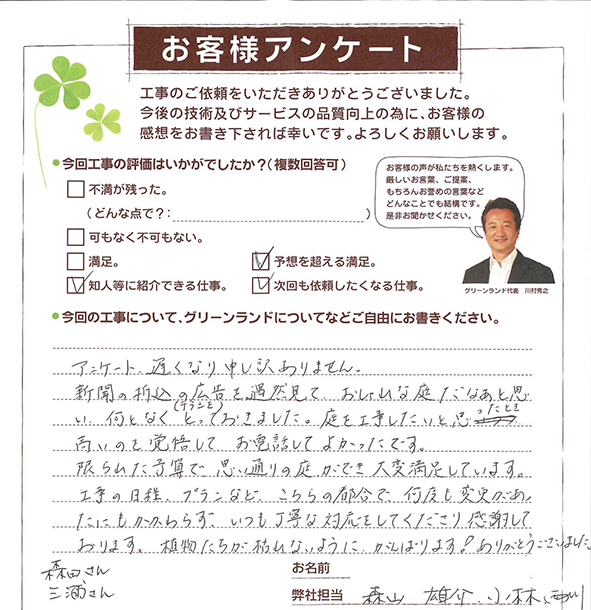 お客様アンケート
工事のご依頼をいただきありがとうございました。
今後の技術及びサービスの品質向上の為に、お客様の
感想をお書き下されば幸いです。よろしくお願いします。
●今回工事の評価はいかがでしたか?(複数回答可)
不満が残った。
(どんな点で?: )
可もなく不可もない。
満足。
予想を超える満足。
知人等に紹介できる仕事。
次回も依頼したくなる仕事。
お客様の声が私たちを熱くします。
厳しいお言葉、ご提案、
もちろんお誉めの言葉など
どんなことでも結構です。
是非お聞かせください。
グリーンランド代表 川村秀之
●今回の工事について、グリーンランドについてなどご自由にお書きください。
アンケート、遅くなり申し訳ありません。
新聞の折込の広告を偶然見て おしゃれな庭だなあと思
い、何となく(チラシを)とっておきました。庭を工事したいと思ったとき
高いのを覚悟して お電話してよかったです。
限られた予算で 思い通りの庭ができ 大変満足しています。
工事の日程、プランなど、こちらの都合で、何度も変更があっ
たにもかかわらず、いつも丁寧な対応をしてくださり感謝して
おります。植物たちが枯れないように がんばります!ありがとうございました。
森田さん
三浦さん
お名前
弊社担当 森山 雄介 小林